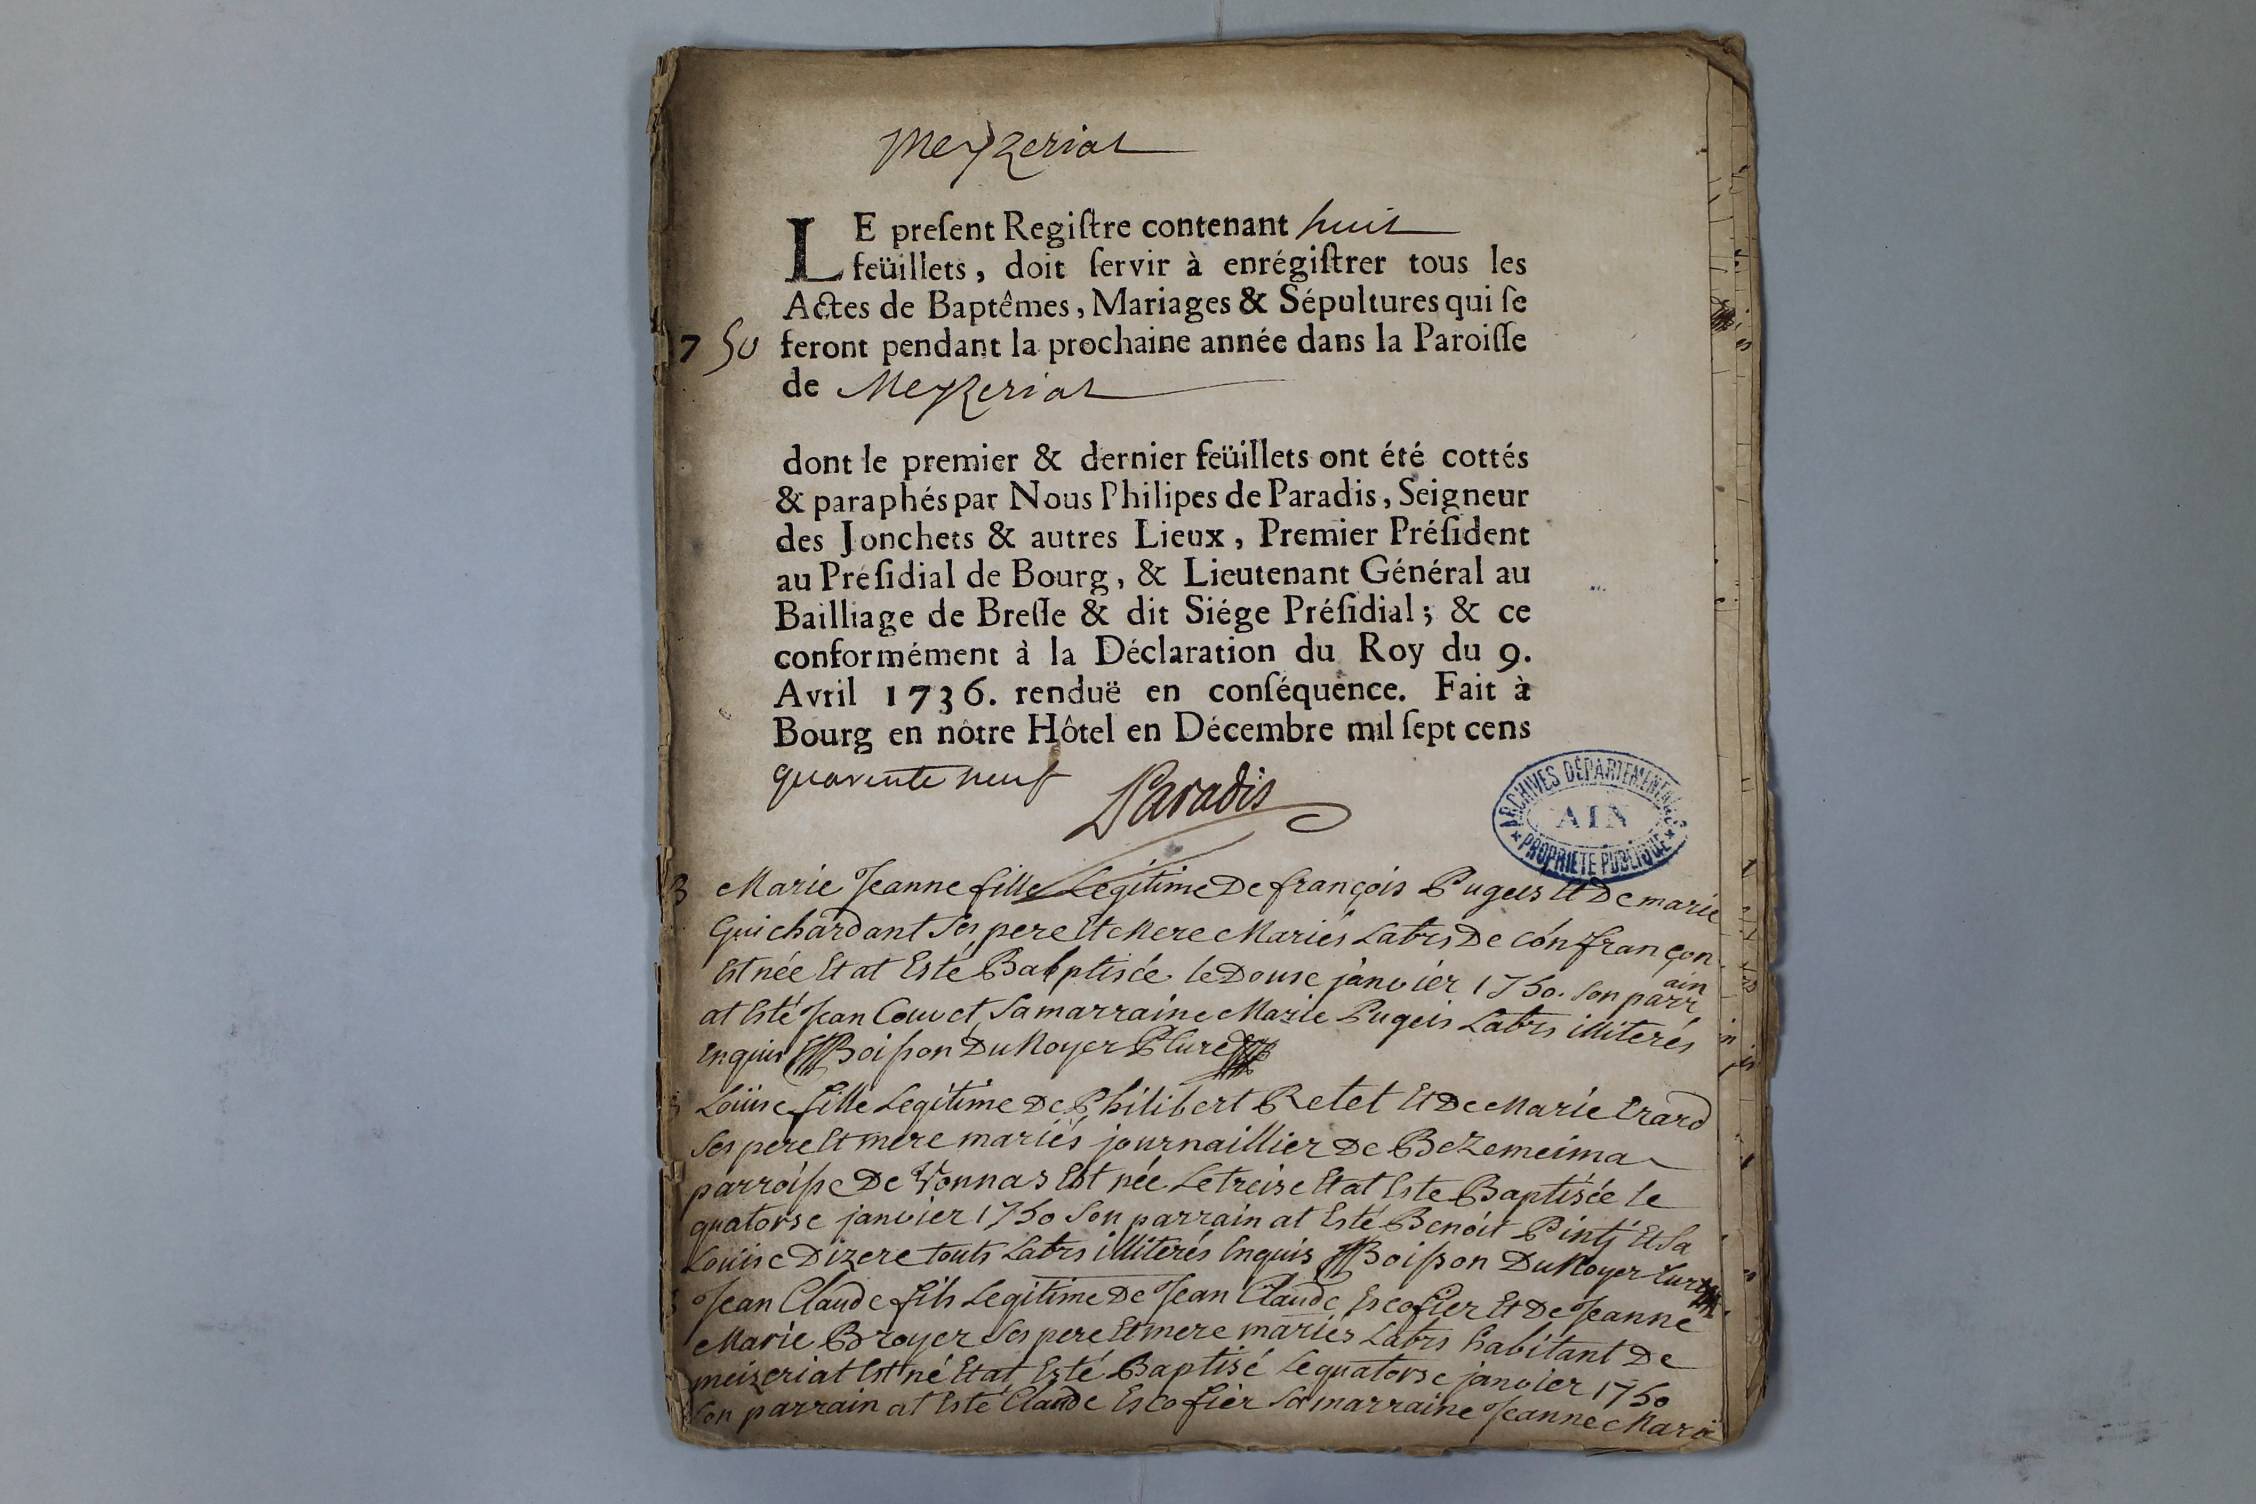 Meyzeriat
LE preſent Regiſtre contenant huit
feüillets, doit ſervir à enrégiſtrer tous les
Actes de Baptêmes, Mariages & Sépultures qui ſe
7 50 feront pendant la prochaine année dans la Paroiſſe
de Meyzeriat
dont le premier & dernier feüillets ont été cottés
& paraphés par Nous Philipes de Paradis, Seigneur
des Jonchets & autres Lieux, Premier Préſident
au Préſidial de Bourg, & Lieutenant Général au
Bailliage de Breſſe & dit Siége Préſidial; & ce
conformément à la Déclaration du Roy du 9.
Avril 1736. renduë en conſéquence. Fait à
Bourg en nôtre Hôtel en Décembre mil ſept cens
quarente neuf Paradis
ARCHIVES DÉPARTEMENTALES
AIN
PROPRIETE PUBLIQUE
B Marie Jeanne fille Legitime De françois Pugeis Et De marie
Guichardant Ses pere Et Mere Mariés Labrs De Confrançon
Est née Et at Esté Babptisée le Douse janvier 1750. Son parrain
at Esté Jean Couvet Sa marraine Marie Pugeis Labrs illiterés
Enquis Boisson Du Noyer Curé
Loüise fille Legitime De Philibert Retet Et De Marie Erard
Ses pere Et mere mariés journaillier De Bezemeima
parroisse De Vonnas Est née Le treise Et at Este Baptisée le
quatorse janvier 1750 Son parrain at Esté Benoit Et Sa
Loüise Dizere touts Labrs illiterés Enquis Boisson Du Noyer Curé
Jean Claude fils Legitime De Jean Claude Escofier Et De Jeanne
Marie Broyer Ses pere Et mere mariés Labrs habitant De
meizeriat Est né Et at Esté Baptisé le quatorse janvier 1750
Son parrain at Esté Claude Escofier Sa marraine Jeanne Marie